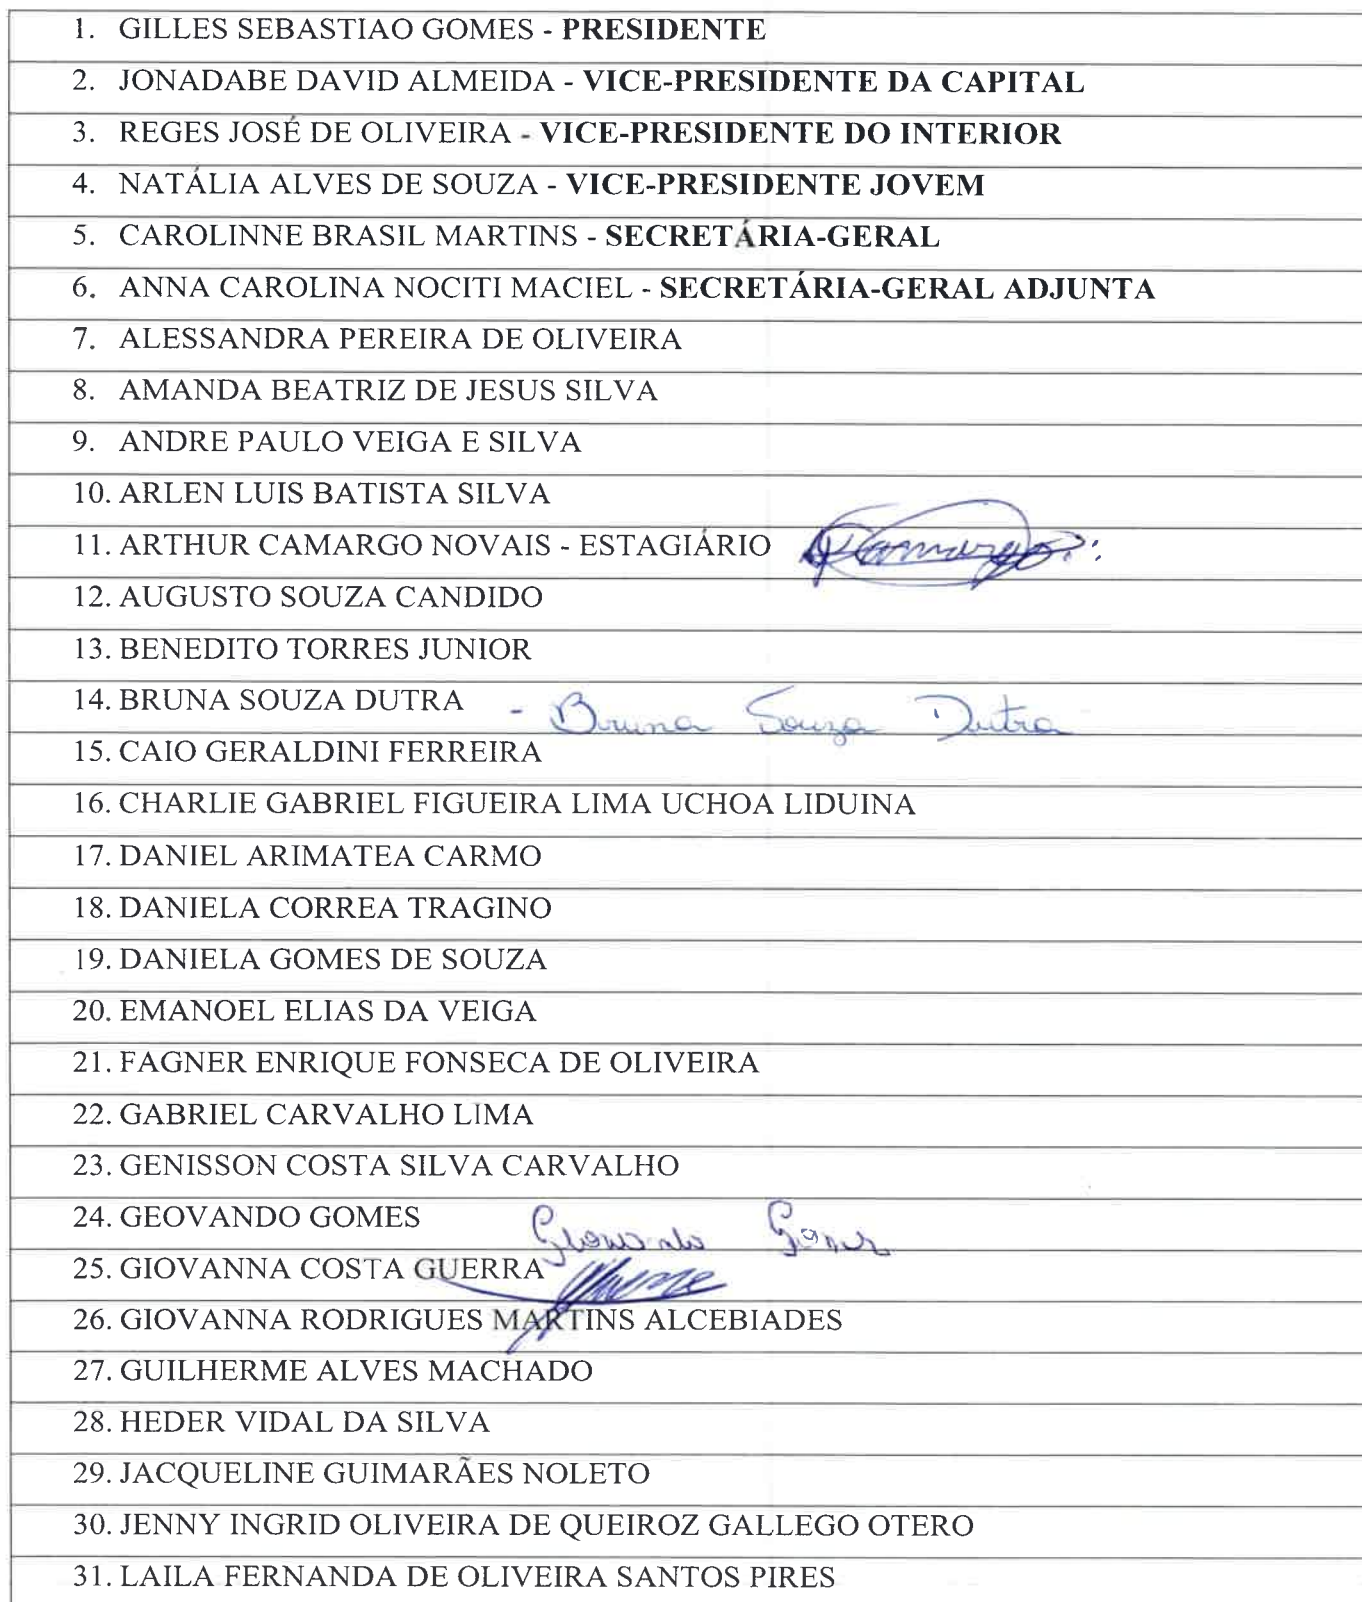 1. GILLES SEBASTIAO GOMES - PRESIDENTE
2. JONADABE DAVID ALMEIDA - VICE-PRESIDENTE DA CAPITAL
3. REGES JOSÉ DE OLIVEIRA - VICE-PRESIDENTE DO INTERIOR
4. NATÁLIA ALVES DE SOUZA - VICE-PRESIDENTE JOVEM
5. CAROLINNE BRASIL MARTINS - SECRETÁRIA-GERAL
6. ANNA CAROLINA NOCITI MACIEL - SECRETÁRIA-GERAL ADJUNTA
7. ALESSANDRA PEREIRA DE OLIVEIRA
8. AMANDA BEATRIZ DE JESUS SILVA
9. ANDRE PAULO VEIGA E SILVA
10. ARLEN LUIS BATISTA SILVA
11. ARTHUR CAMARGO NOVAIS - ESTAGIÁRIO Camargo
12. AUGUSTO SOUZA CANDIDO
13. BENEDITO TORRES JUNIOR
14. BRUNA SOUZA DUTRA - Bruna Souza Dutra
15. CAIO GERALDINI FERREIRA
16. CHARLIE GABRIEL FIGUEIRA LIMA UCHOA LIDUINA
17. DANIEL ARIMATEA CARMO
18. DANIELA CORREA TRAGINO
19. DANIELA GOMES DE SOUZA
20. EMANOEL ELIAS DA VEIGA
21. FAGNER ENRIQUE FONSECA DE OLIVEIRA
22. GABRIEL CARVALHO LIMA
23. GENISSON COSTA SILVA CARVALHO
24. GEOVANDO GOMES Geovando Gomes
25. GIOVANNA COSTA GUERRA
26. GIOVANNA RODRIGUES MARTINS ALCEBIADES
27. GUILHERME ALVES MACHADO
28. HEDER VIDAL DA SILVA
29. JACQUELINE GUIMARÃES NOLETO
30. JENNY INGRID OLIVEIRA DE QUEIROZ GALLEGO OTERO
31. LAILA FERNANDA DE OLIVEIRA SANTOS PIRES